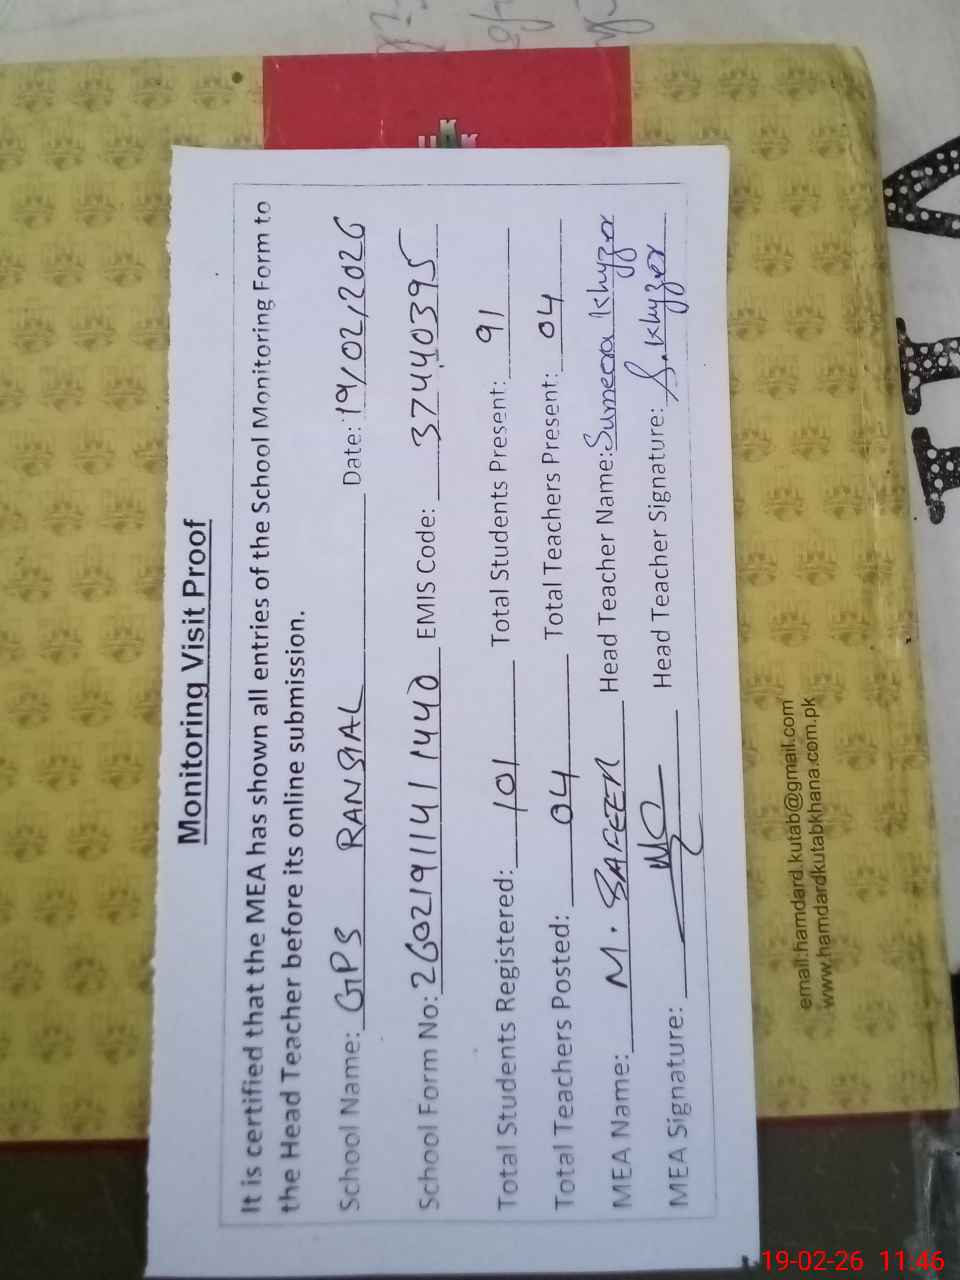 Monitoring Visit Proof
It is certified that the MEA has shown all entries of the School Monitoring Form to
the Head Teacher before its online submission.
School Name: GPS RANSIAL Date: 19/02/2026
School Form No: 26021911411440 EMIS Code: 37440395
Total Students Registered: 101 Total Students Present: 91
Total Teachers Posted: 04 Total Teachers Present: 04
MEA Name: M. SAFEER Head Teacher Name: Sumeera Khyzer
MEA Signature: Head Teacher Signature: S. Khyzer
email:hamdard.kutab@gmail.com
www.hamdardkutabkhana.com.pk
19-02-26 11:46